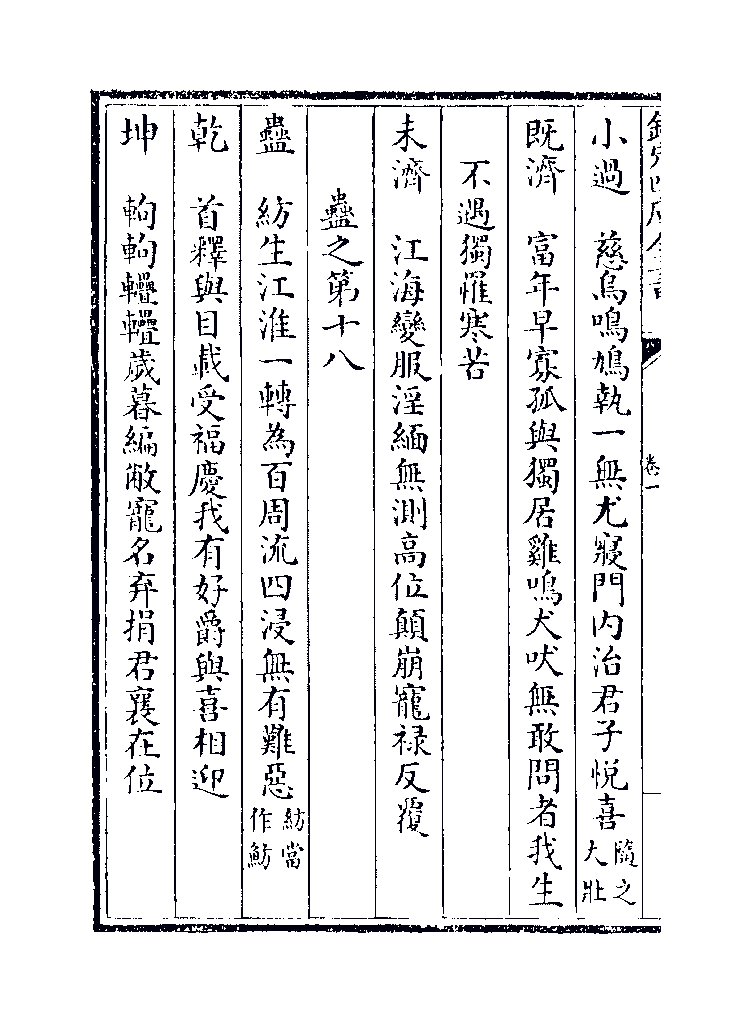 欽定四庫全書
卷一
小過　慈烏鳴鳩執一無尤寢門內治君子悅喜隨之大壯
既濟　富年早寡孤與獨居雞鳴犬吠無敢問者我生
不遇獨罹寒苦
未濟　江海變服淫緬無測高位顛崩寵祿反覆
蠱之第十八
蠱　紡生江淮一轉為百周流四浸無有難惡紡當作魴
乾　首釋與目載受福慶我有好爵與喜相迎
坤　軥軥轠轠歲暮編敝寵名弃捐君襄在位